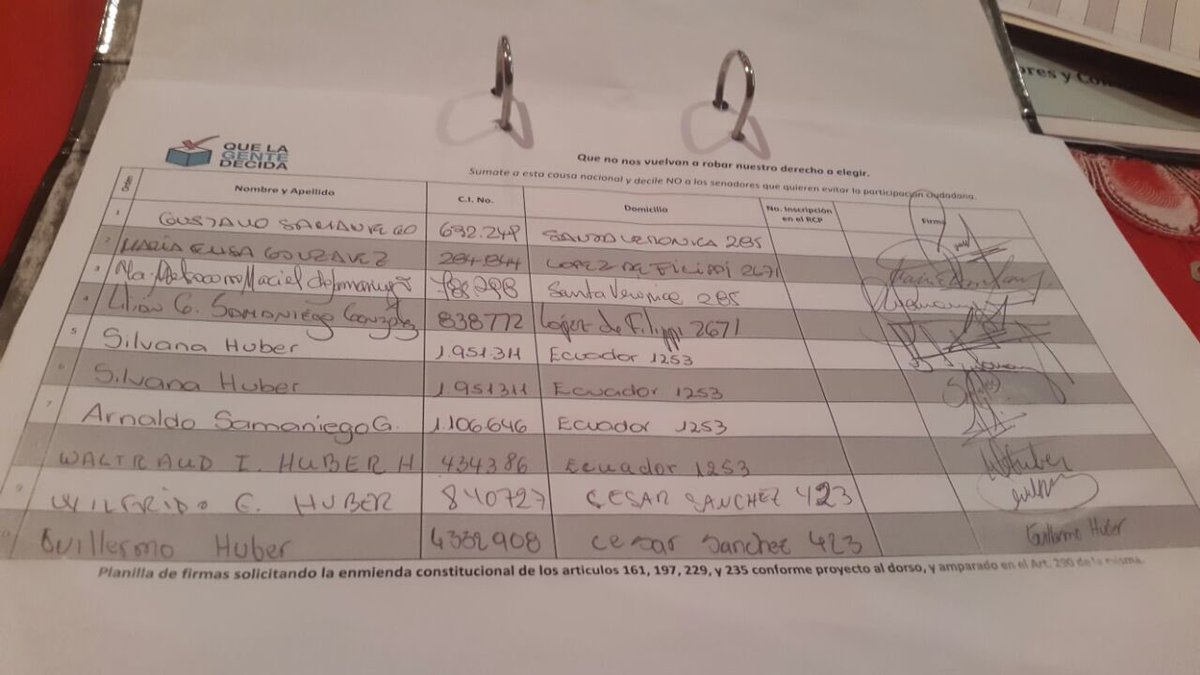 ores y Con
QUE LA
GENTE
DECIDA
Que no nos vuelvan a robar nuestro derecho a elegir.
Sumate a esta causa nacional y decile NO a los senadores que quieren evitar la participación ciudadana.
Orden Nombre y Apellido C.I. No. Domicilio No. Inscripción en el RCP Firma
1 GUSTAVO SAMANIEGO 692.248 SANTA VERONICA 285
2 MARÍA ELISA GONZALEZ 284.844 LOPEZ DE FILIPPI 2671
3 Ma. Maciel de Samaniego 788.298 Santa Veronica 285
4 Lilián G. SAMANIEGO González 838772 López de Filippi 2671
5 Silvana Huber 1.951.311 Ecuador 1253
6 Silvana Huber 1.951311 Ecuador 1253
7 Arnaldo Samaniego G. 1.106646 Ecuador 1253
WALTRAUD I. HUBER H 434386 Ecuador 1253 WHuber
9 WILFRIDO G. HUBER 840727 CESAR SANCHEZ 423
10 Guillermo Huber 4332908 cesar Sanchez 423 Guillermo Huber
Planilla de firmas solicitando la enmienda constitucional de los articulos 161, 197, 229, y 235 conforme proyecto al dorso, y amparado en el Art. 290 de la misma.